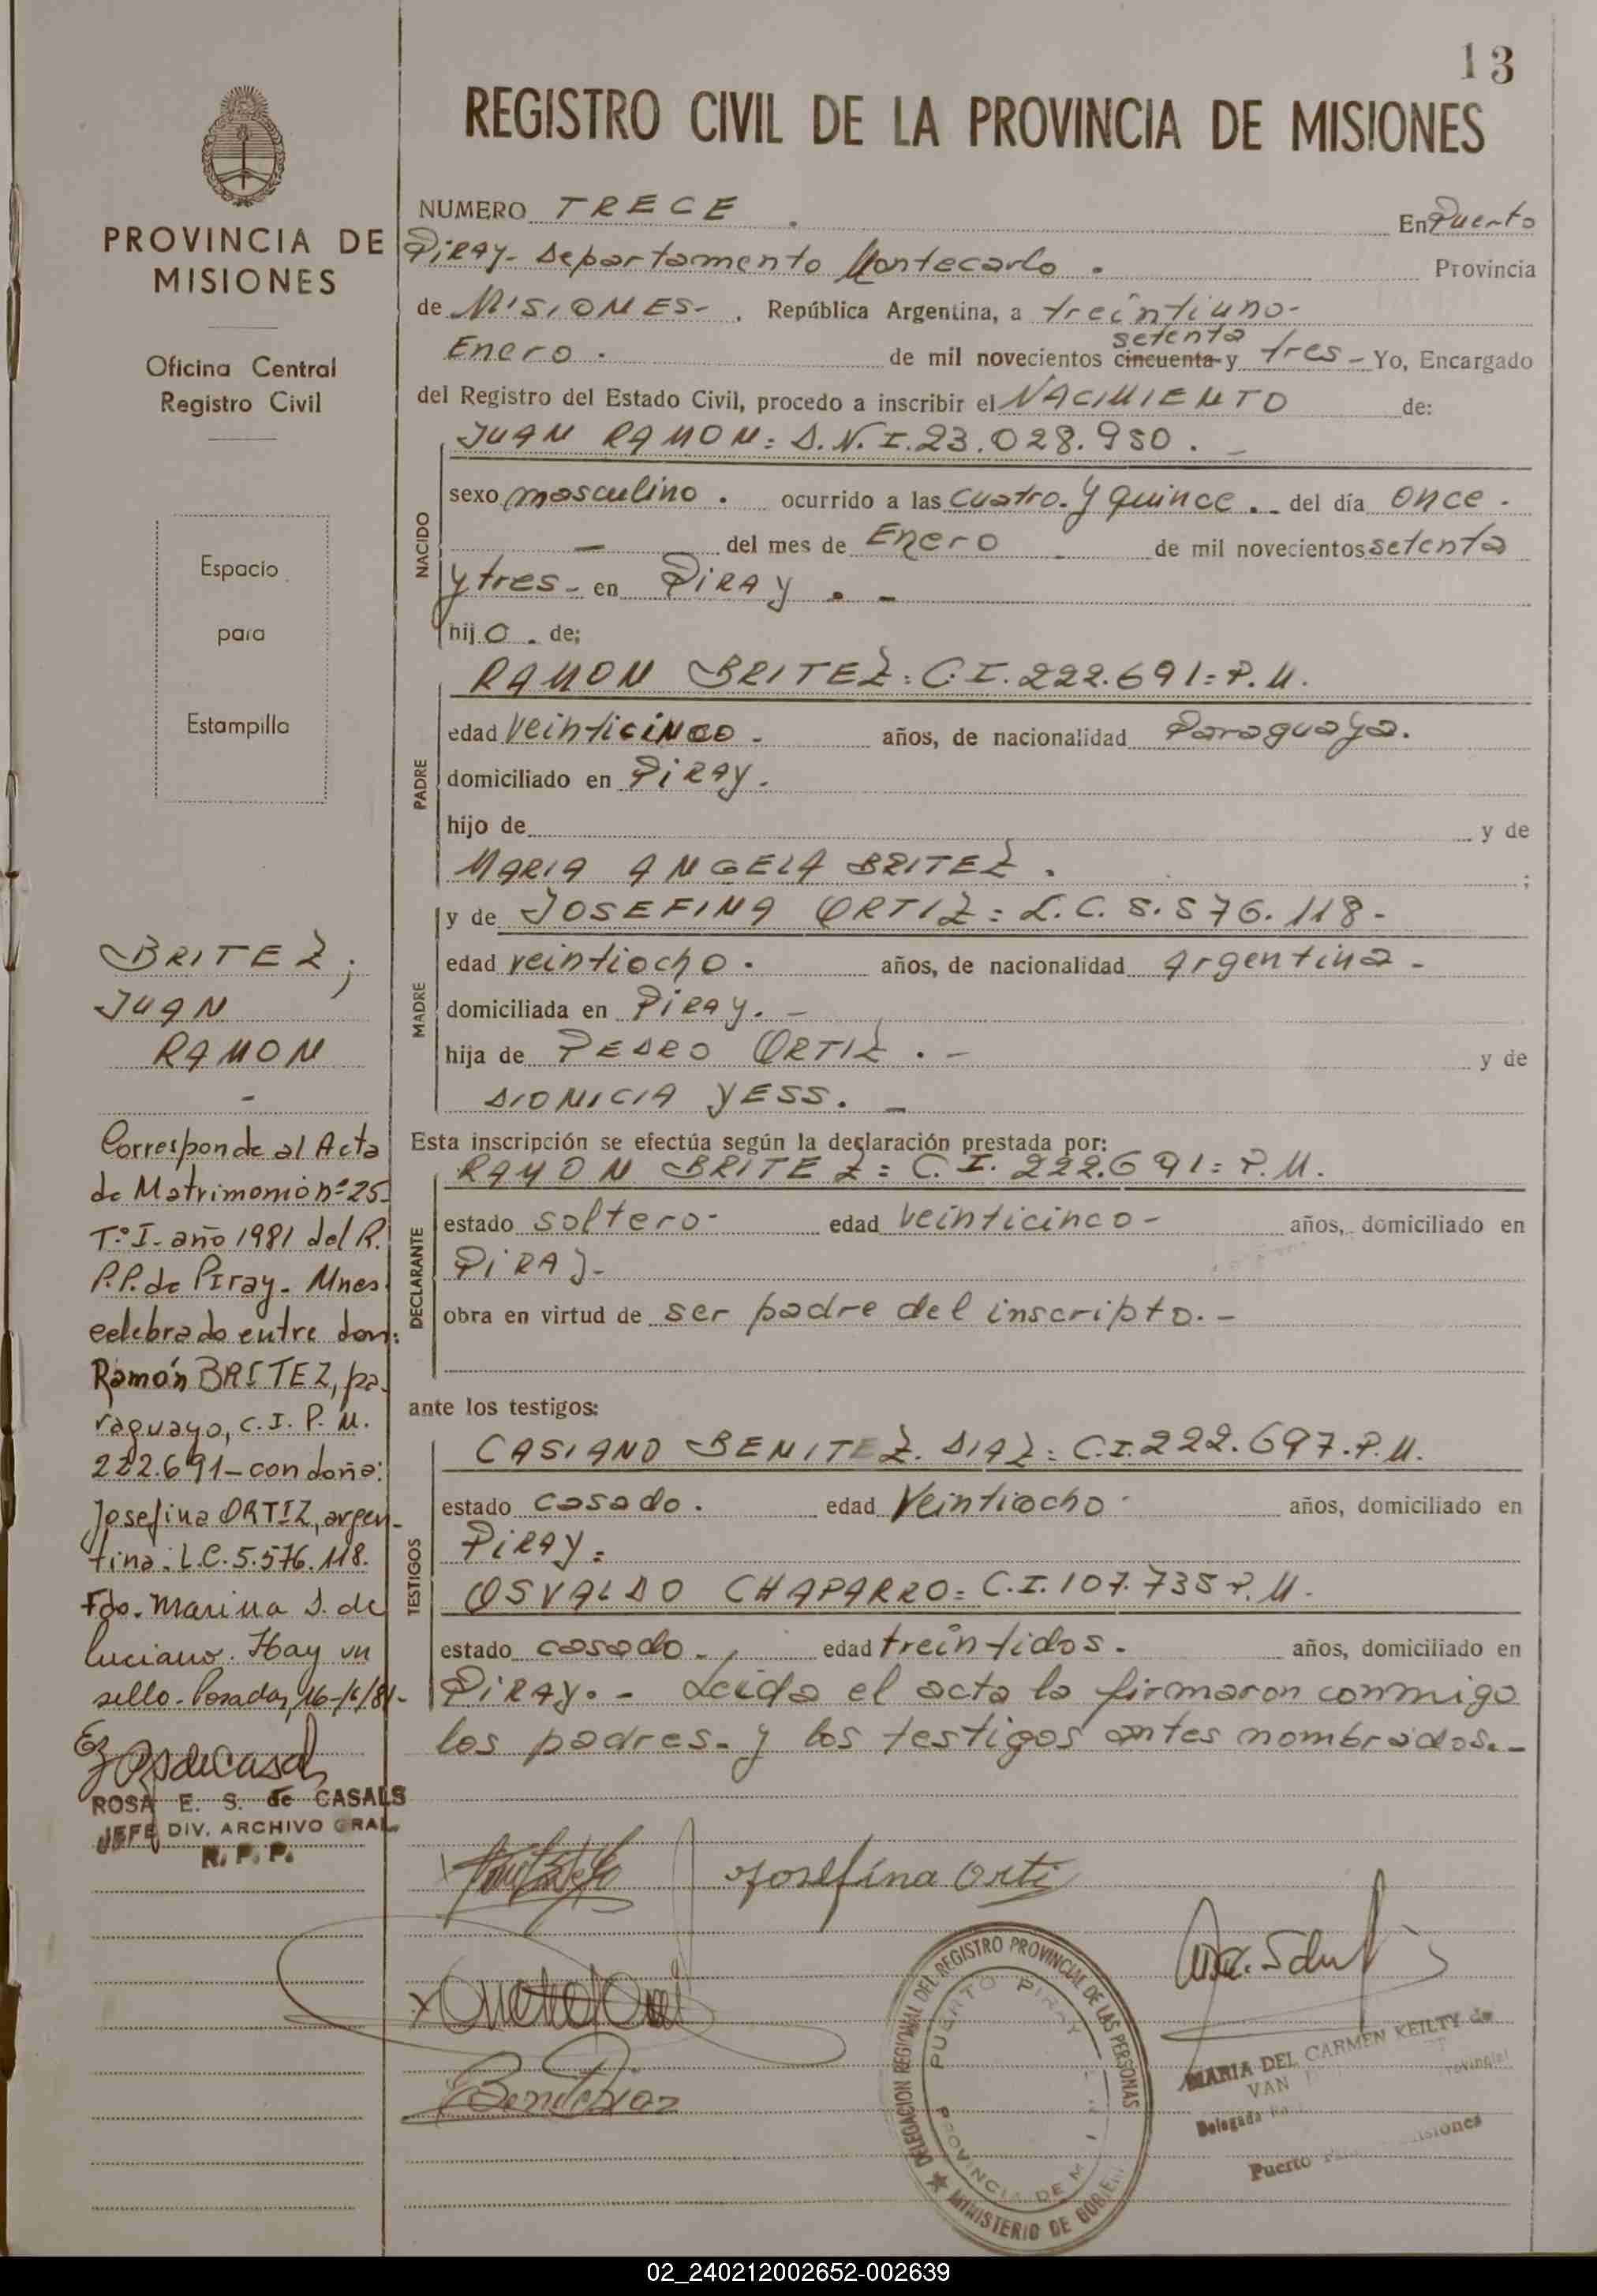 13
REGISTRO CIVIL DE LA PROVINCIA DE MISIONES
PROVINCIA DE
MISIONES
Oficina Central
Registro Civil
Espacio
para
Estampilla
BRITEZ;
JUAN
RAMON
-
Corresponde al Acta
de Matrimonio nº 25
Tº I - año 1981 del R.
P.P. de Piray - Mnes
celebrado entre don:
Ramón BRITEZ, pa-
raguayo, C.I. P. M.
222.691 - con doña:
Josefina ORTIZ, argen-
tina. L.C. 5.576.118.
Fdo. Marina S. de
Luciano. Hay un
sello - Posadas, 16-/6/81-
ROSA E. S. de CASALS
JEFE DIV. ARCHIVO GRAL.
R. P. P.
NUMERO TRECE . En Puerto
Piray - Departamento Montecarlo . Provincia
de MISIONES - . República Argentina, a treintiuno -
setenta
Enero . de mil novecientos cincuenta y tres - Yo, Encargado
del Registro del Estado Civil, procedo a inscribir el NACIMIENTO de:
JUAN RAMON = D.N.I. 23.028.950 . -
NACIDO
sexo masculino . ocurrido a las cuatro y quince . - del día once -
- del mes de Enero - de mil novecientos setenta
y tres - en PIRAY . -
hijo . de;
RAMON BRITEZ = C.I. 222.691 = P.M.
PADRE
edad veinticinco - años, de nacionalidad Paraguaya.
domiciliado en PIRAY.
hijo de y de
MARIA ANGELA BRITEZ . ;
MADRE
y de JOSEFINA ORTIZ = L.C. 5.576.118 -
edad veintiocho . años, de nacionalidad Argentina -
domiciliada en PIRAY . -
hija de PEDRO ORTIZ . - y de
DIONICIA YESS . -
Esta inscripción se efectúa según la declaración prestada por:
RAMON BRITEZ = C. I. 222.691 = P.M.
DECLARANTE
estado soltero - edad veinticinco - años, domiciliado en
PIRAY -
obra en virtud de ser padre del inscripto . -
ante los testigos:
CASIANO BENITEZ DIAZ = C.I. 222.697 . P.M.
TESTIGOS
estado casado . edad veintiocho - años, domiciliado en
PIRAY =
OSVALDO CHAPARRO = C.I. 107.735 P.M.
estado casado - edad treintidos - años, domiciliado en
PIRAY . - Leida el acta la firmaron conmigo
los padres - y los testigos antes nombrados . -
Josefina Orti
DELEGACION REGIONAL DEL REGISTRO PROVINCIAL DE LAS PERSONAS
PUERTO PIRAY
PROVINCIA DE M
MINISTERIO DE GOBIE
MARIA DEL CARMEN KEILTY de
VAN
Delegada
Puerto
02_240212002652-002639